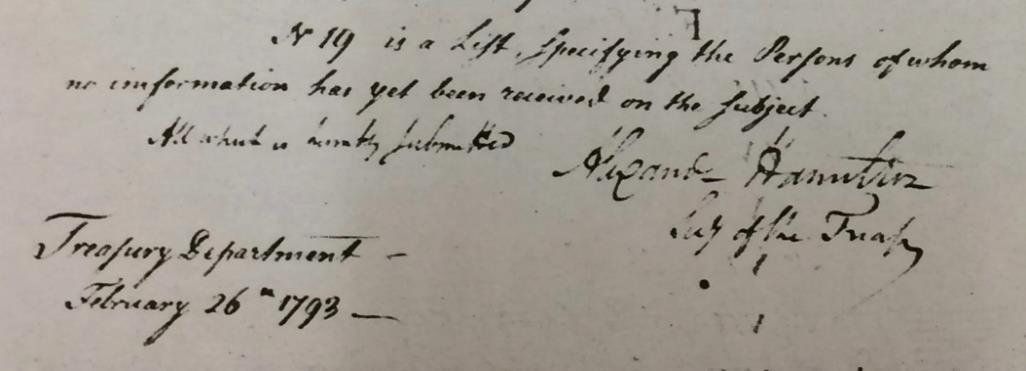 No 19 is a List Specifying the Persons of whom
no imformation has yet been received on the Subject.
All which is humbly submitted
Alexander Hamilton
Secy of the Treasy
Treasury Department —
February 26th 1793 —